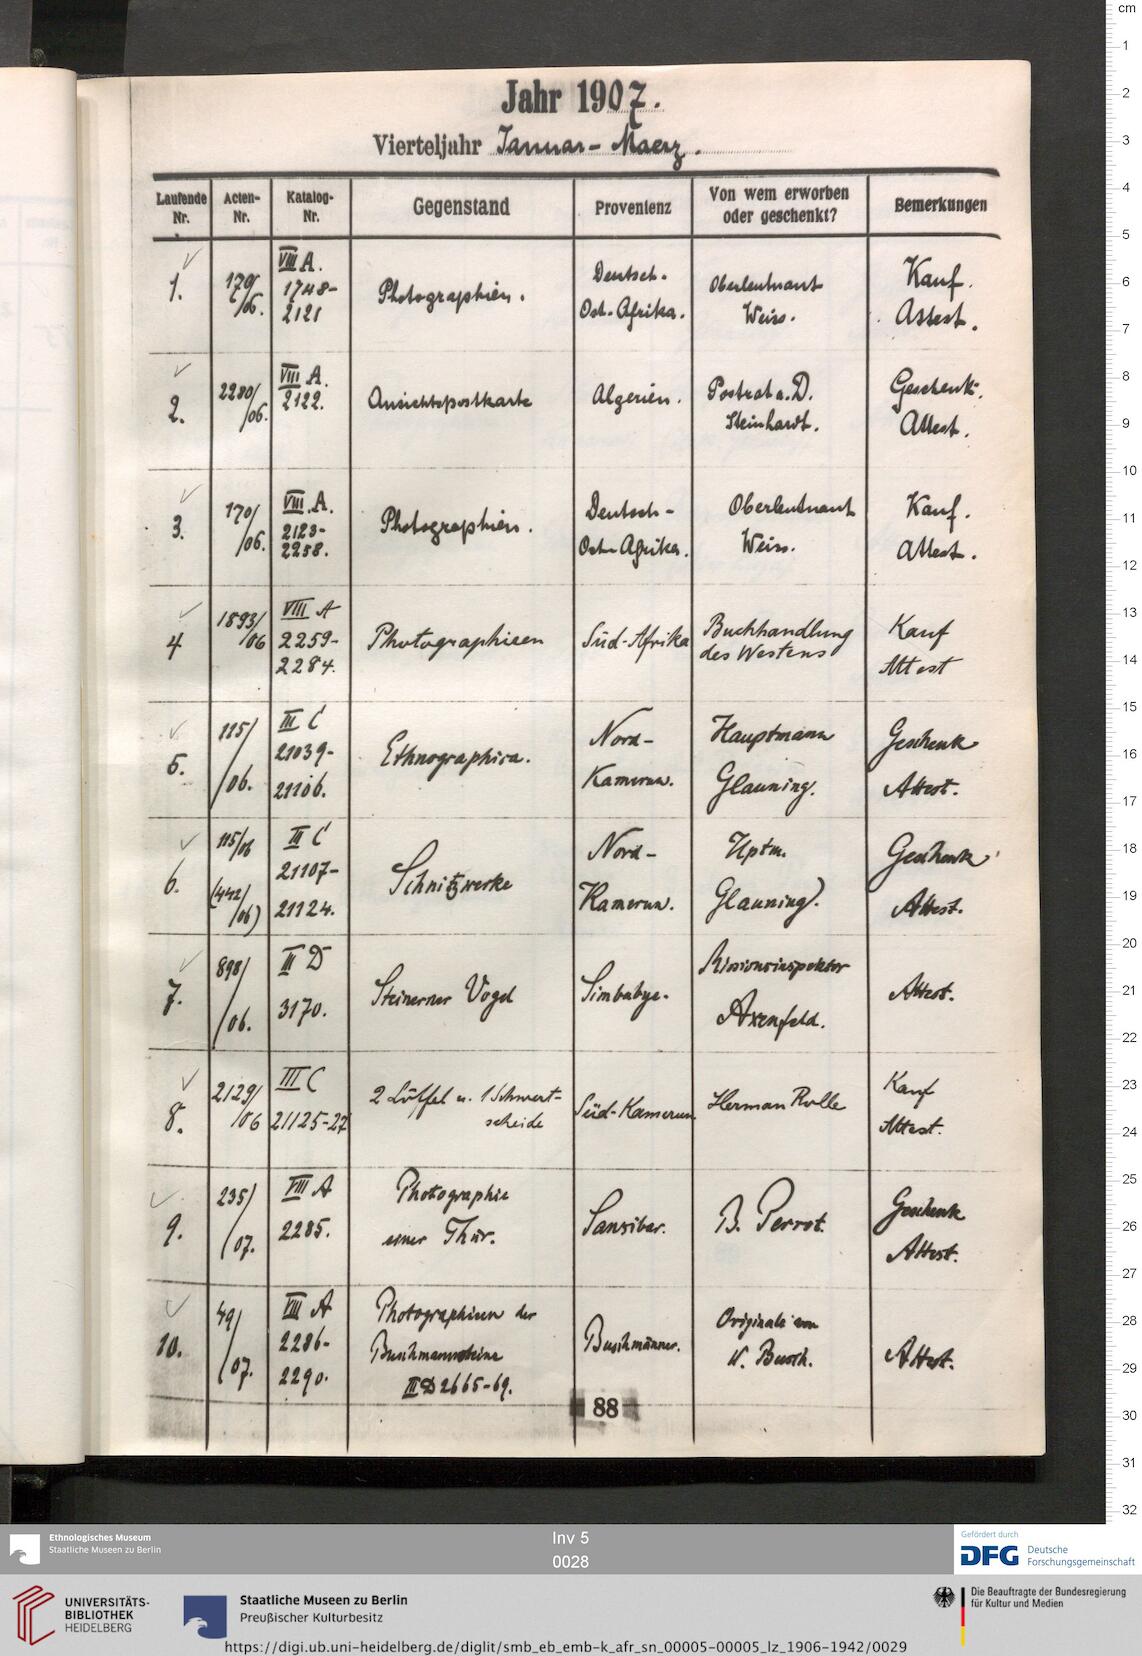 Jahr 1907.
Vierteljahr Januar - Maerz.
Laufende Nr. Acten-Nr. Katalog-Nr. Gegenstand Provenienz Von wem erworben oder geschenkt? Bemerkungen
1. 170/06. VIII A. 1748-2121 Photographien. Deutsch-Ost-Afrika. Oberleutnant Weiss. Kauf. Attest.
2. 2280/06. VIII A. 2122. Ansichtspostkarte Algerien. Postrat a. D. Steinhardt. Geschenk. Attest.
3. 170/06. VIII A. 2123-2258. Photographien. Deutsch-Ost-Afrika. Oberleutnant Weiss. Kauf. Attest.
4 1893/06 VIII A 2259-2284. Photographieen Süd-Afrika Buchhandlung des Westens Kauf Attest
5. 115/06. III C 21039-21106. Ethnographica. Nord-Kamerun. Hauptmann Glauning. Geschenk Attest.
6. 115/06 (442/06) III C 21107-21124. Schnitzwerke Nord-Kamerun. Hptm. Glauning. Geschenk Attest.
7. 898/06. III D 3170. Steinerner Vogel Simbabye. Missionsinspektor Axenfeld. Attest.
8. 2129/06 III C 21125-27 2 Löffel u. 1 Schwert-scheide Süd-Kamerun Herman Rolle Kauf Attest.
9. 235/07. VIII A 2285. Photographie einer Thür. Sansibar. B. Perrot. Geschenk Attest.
10. 49/07. VIII A 2286-2290. Photographieen der Buschmannsteine III D 2665-69. Buschmänner. Originale von Attest.
88
cm
1
2
3
4
5
6
7
8
9
10
11
12
13
14
15
16
17
18
19
20
21
22
23
24
25
26
27
28
29
30
31
32
Ethnologisches Museum
Staatliche Museen zu Berlin
Inv 5
0028
Gefördert durch
DFG Deutsche
Forschungsgemeinschaft
UNIVERSITÄTS-
BIBLIOTHEK
HEIDELBERG
Staatliche Museen zu Berlin
Preußischer Kulturbesitz
Die Beauftragte der Bundesregierung
für Kultur und Medien
https://digi.ub.uni-heidelberg.de/diglit/smb_eb_emb-k_afr_sn_00005-00005_lz_1906-1942/0029